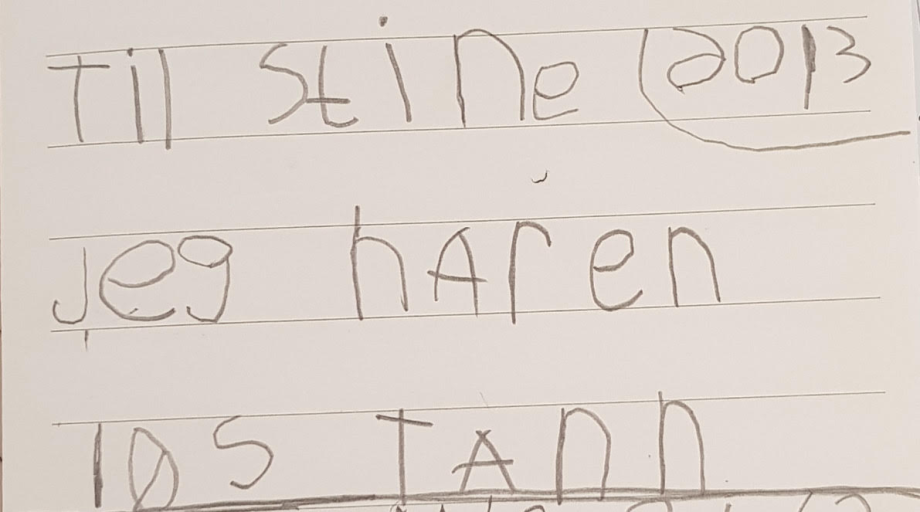 Till Stine 2013
jeg hAr en
løs tAnn